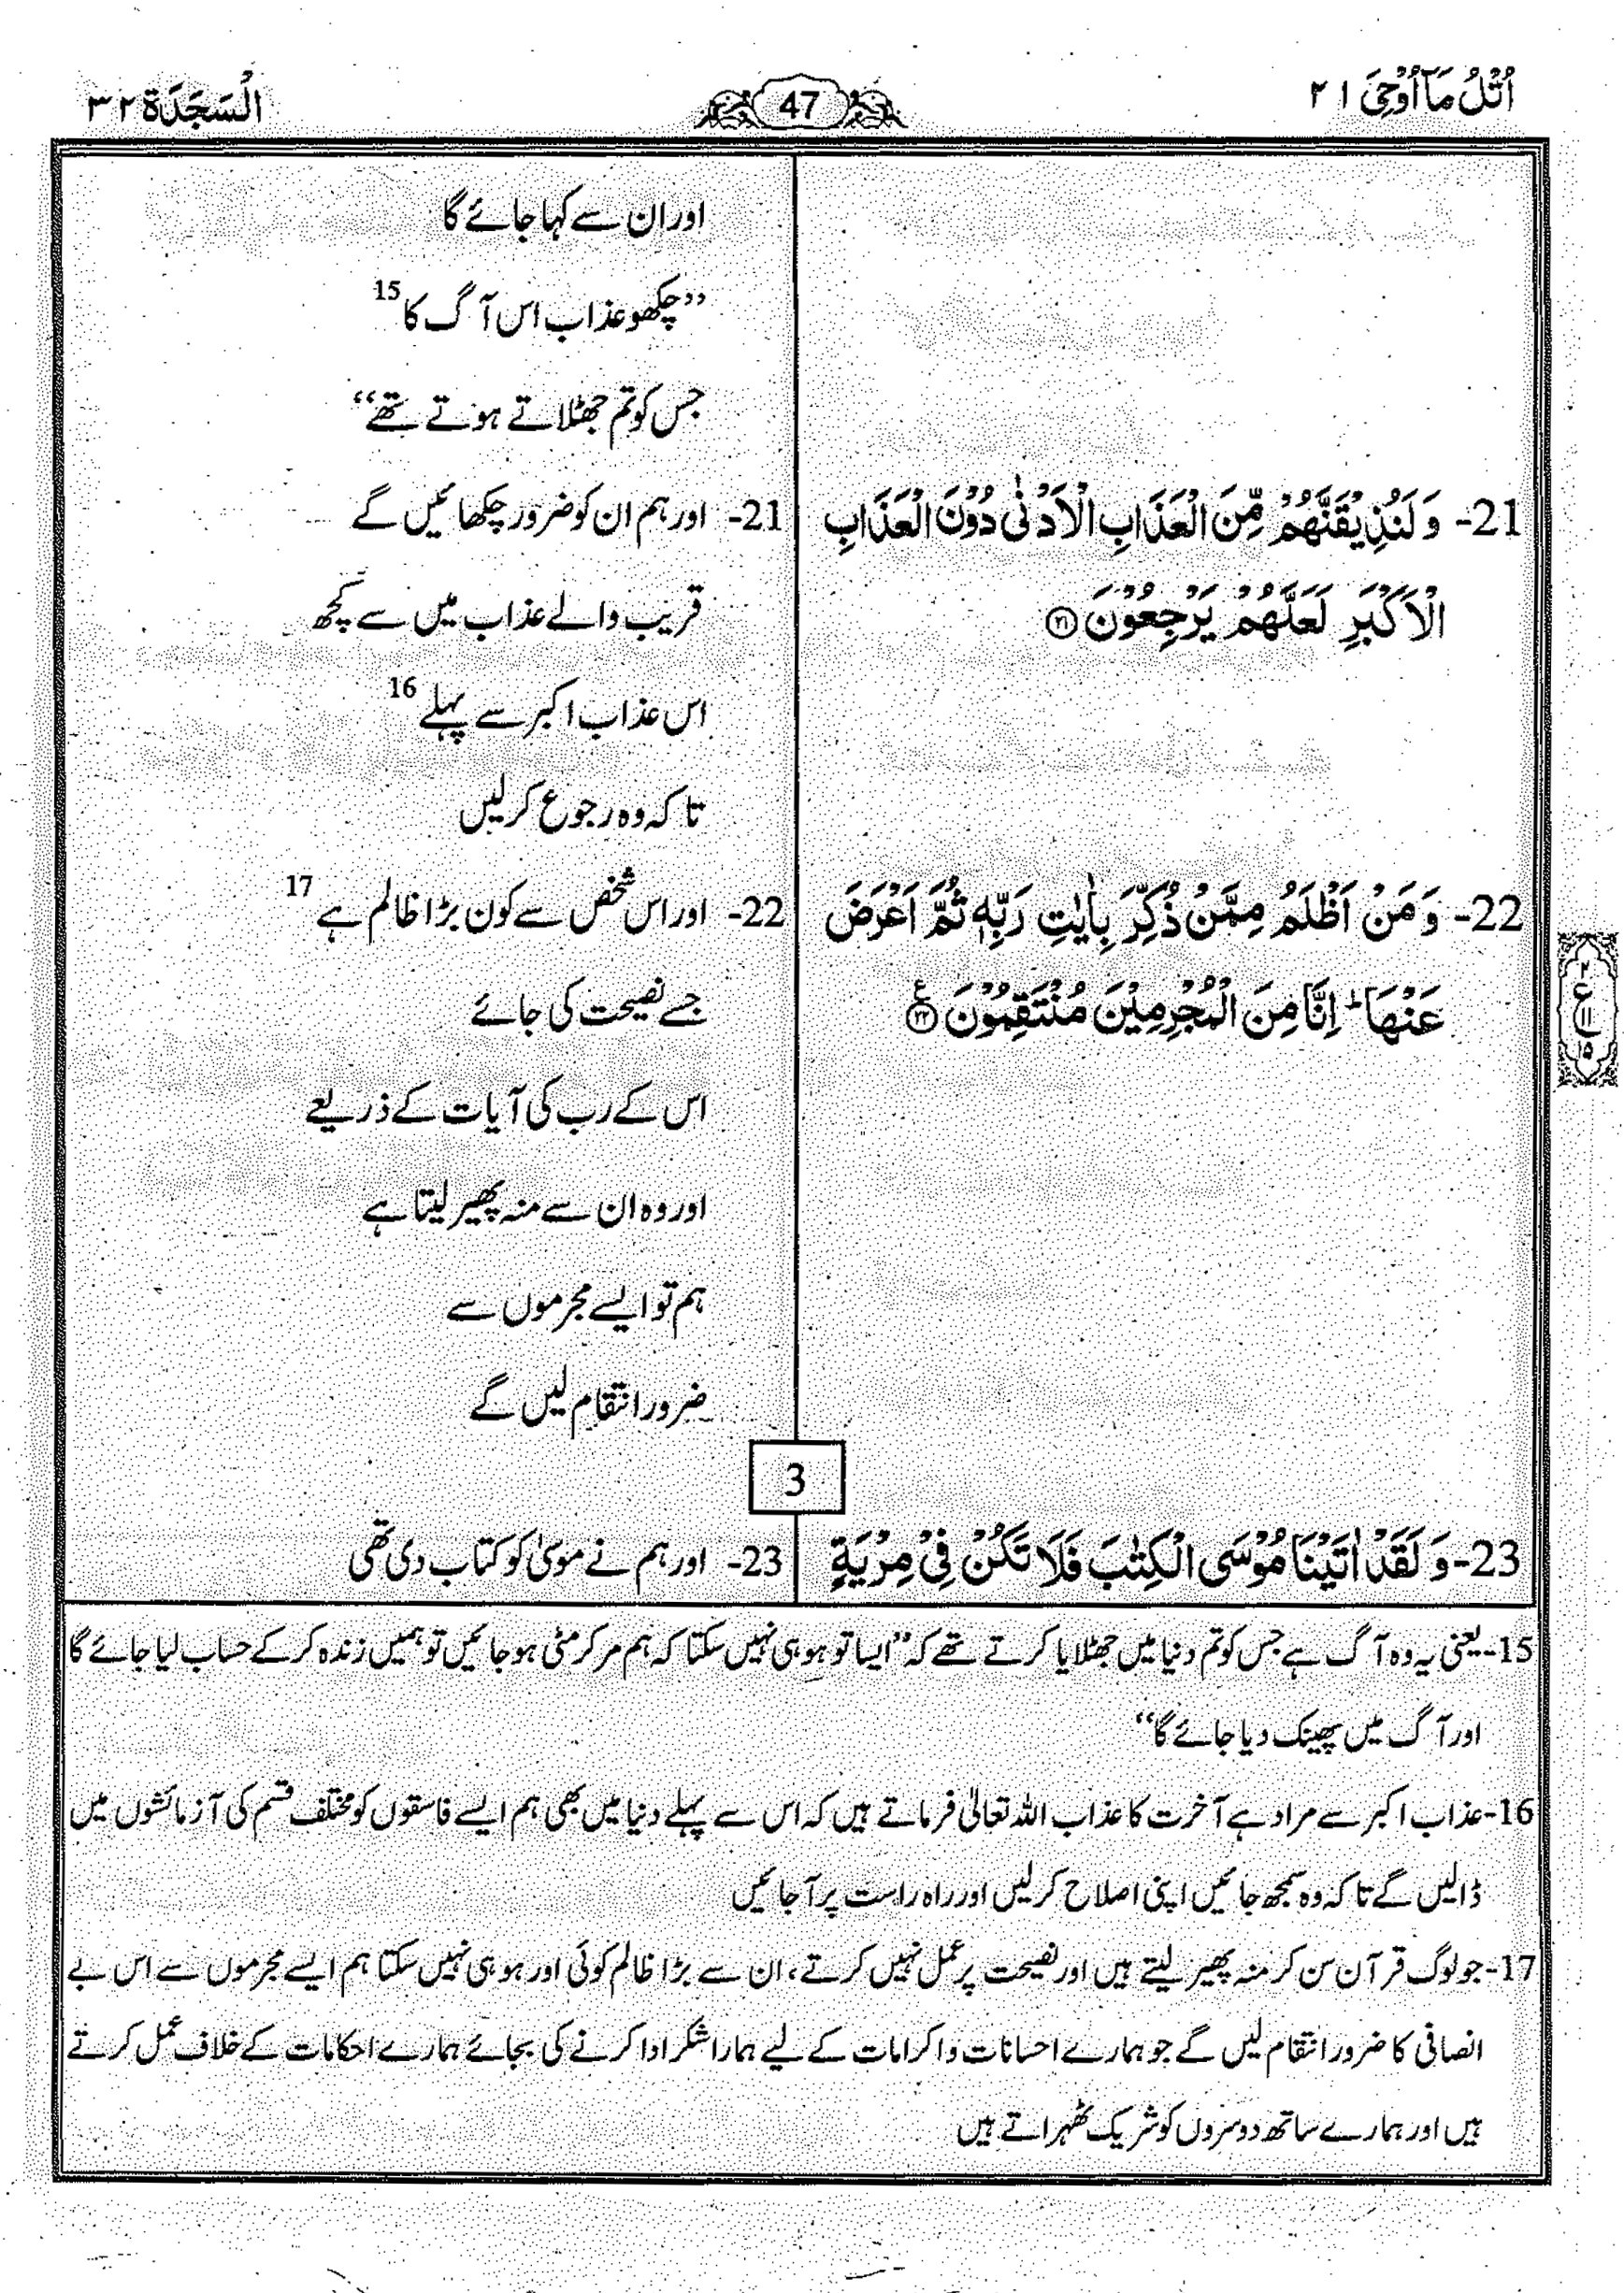 اُتْلُ مَاۤ اُوْحِیَ ٢١
47
اَلسَّجْدَة ٣٢
اور ان سے کہا جائے گا
”چکھو عذاب اس آگ کا 15
جس کو تم جھٹلاتے ہوتے تھے“
21- وَ لَنُذِیْقَنَّهُمْ مِّنَ الْعَذَابِ الْاَدْنٰی دُوْنَ الْعَذَابِ
الْاَكْبَرِ لَعَلَّهُمْ یَرْجِعُوْنَ ﴿٢١﴾
21- اور ہم ان کو ضرور چکھائیں گے
قریب والے عذاب میں سے کچھ
اس عذاب اکبر سے پہلے 16
تا کہ وہ رجوع کر لیں
22- وَ مَنْ اَظْلَمُ مِمَّنْ ذُكِّرَ بِاٰیٰتِ رَبِّهٖ ثُمَّ اَعْرَضَ
عَنْهَا ؕ اِنَّا مِنَ الْمُجْرِمِیْنَ مُنْتَقِمُوْنَ ﴿٢٢﴾ ع
22- اور اس شخص سے کون بڑا ظالم ہے 17
جسے نصیحت کی جائے
اس کے رب کی آیات کے ذریعے
اور وہ ان سے منہ پھیر لیتا ہے
ہم تو ایسے مجرموں سے
ضرور انتقام لیں گے
٢
ع
١١
١٥
3
23- وَ لَقَدْ اٰتَیْنَا مُوْسَی الْكِتٰبَ فَلَا تَكُنْ فِیْ مِرْیَةٍ
23- اور ہم نے موسیٰ کو کتاب دی تھی
15- یعنی یہ وہ آگ ہے جس کو تم دنیا میں جھٹلایا کرتے تھے کہ ”ایسا تو ہو ہی نہیں سکتا کہ ہم مر کر مٹی ہو جائیں تو ہمیں زندہ کر کے حساب لیا جائے گا
اور آگ میں پھینک دیا جائے گا“
16- عذاب اکبر سے مراد ہے آخرت کا عذاب اللہ تعالیٰ فرماتے ہیں کہ اس سے پہلے دنیا میں بھی ہم ایسے فاسقوں کو مختلف قسم کی آزمائشوں میں
ڈالیں گے تا کہ وہ سمجھ جائیں اپنی اصلاح کر لیں اور راہ راست پر آ جائیں
17- جو لوگ قرآن سن کر منہ پھیر لیتے ہیں اور نصیحت پر عمل نہیں کرتے، ان سے بڑا ظالم کوئی اور ہو ہی نہیں سکتا ہم ایسے مجرموں سے اس بے
انصافی کا ضرور انتقام لیں گے جو ہمارے احسانات و اکرامات کے لیے ہمارا شکر ادا کرنے کی بجائے ہمارے احکامات کے خلاف عمل کرتے
ہیں اور ہمارے ساتھ دوسروں کو شریک ٹھہراتے ہیں